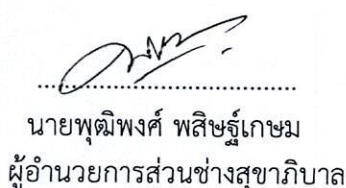 นายพุฒิพงศ์ พสิษฐ์เกษม
ผู้อำนวยการส่วนช่างสุขาภิบาล